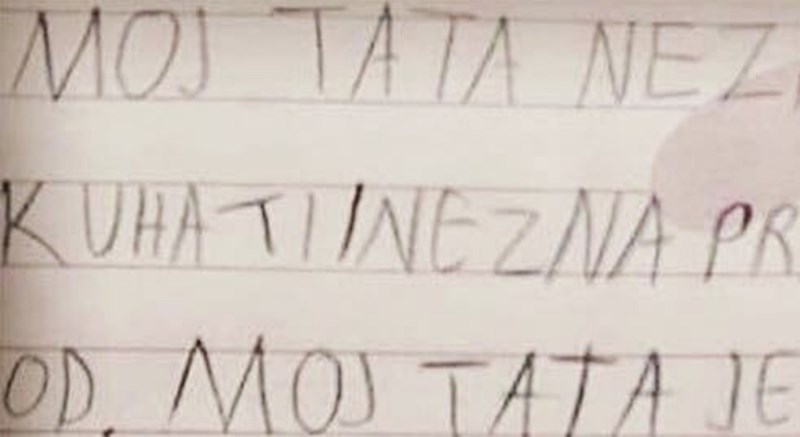 MOJ TATA NEZ
KUHATI I NEZNA PR
OD. MOJ TATA JE